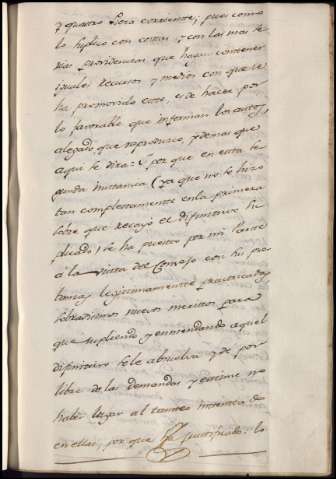 y quatro Será corriente; pues como
lo suplico con costas, y con las mas se
rias providencias que hagan contener
iguales recursos y medios con que se
ha promovido este, es de hacer por
lo favorable que informan los autos,
alegado que reproduzco, y demas que
aqui se dira: Y por que en esta se
gunda instancia (ya que no se hizo
tan completamente en la primera
sobre que recayó el difinitivo su
plicado) se ha puesto por mi parte
á la vista del Consejo con su pro
banzas legitimamente practicadas
sobradisimos nuevos meritos para
que supliendo y enmendando aquel
difinitivo se le absuelva y dé por
libre de las demandas y estime no
haber lugar al tanteo intentado
en ellas; por que justificado lo